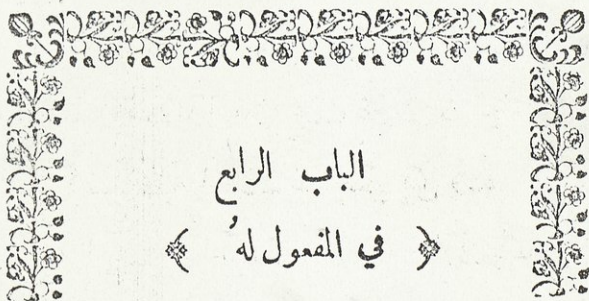 الباب الرابع
﴿ في المفعول لهُ ﴾